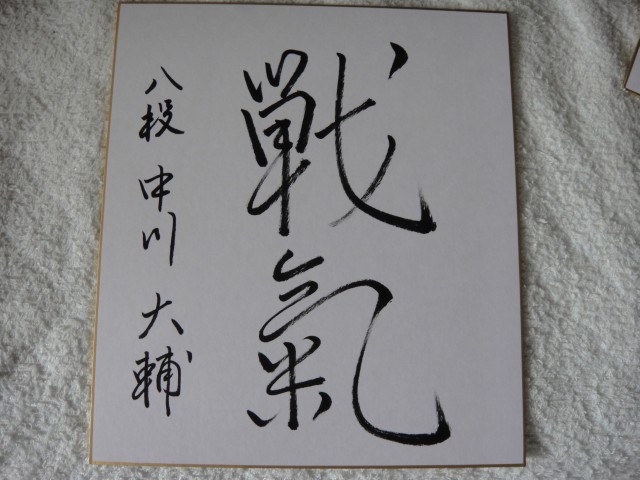 戰氣
八段 中川大輔